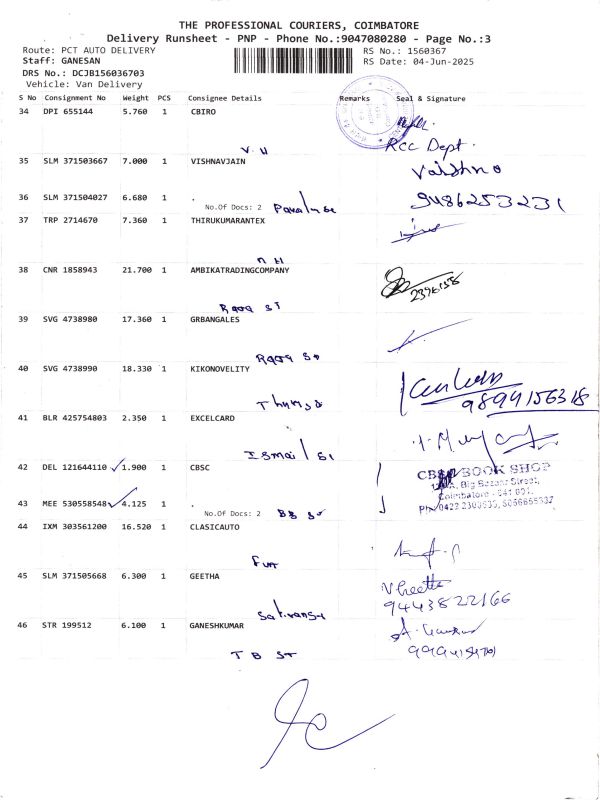 THE PROFESSIONAL COURIERS, COIMBATORE
Delivery Runsheet - PNP - Phone No.:9047080280 - Page No.:3
Route: PCT AUTO DELIVERY RS No.: 1560367
Staff: GANESAN RS Date: 04-Jun-2025
DRS No.: DCJB156036703
Vehicle: Van Delivery
S No Consignment No Weight PCS Consignee Details Remarks Seal & Signature
34 DPI 655144 5.760 1 CBIRO
V. H Rcc Dept.
35 SLM 371503667 7.000 1 VISHNAVJAIN
Vaishno
36 SLM 371504027 6.680 1 .
No.Of Docs: 2 9486253231
37 TRP 2714670 7.360 1 THIRUKUMARANTEX
N H
38 CNR 1858943 21.700 1 AMBIKATRADINGCOMPANY
Raja ST
39 SVG 4738980 17.360 1 GRBANGALES
Raja St
40 SVG 4738990 18.330 1 KIKONOVELITY
9894156318
41 BLR 425754803 2.350 1 EXCELCARD
Ismail St
42 DEL 121644110 1.900 1 CBSC
BOOK SHOP
Big Bazaar Street,
Coimbatore - 641 001.
43 MEE 530558548 4.125 1 .
No.Of Docs: 2 BB St
44 IXM 303561200 16.520 1 CLASICAUTO
Fun
45 SLM 371505668 6.300 1 GEETHA
V Geetha
9443822166
46 STR 199512 6.100 1 GANESHKUMAR
T B ST